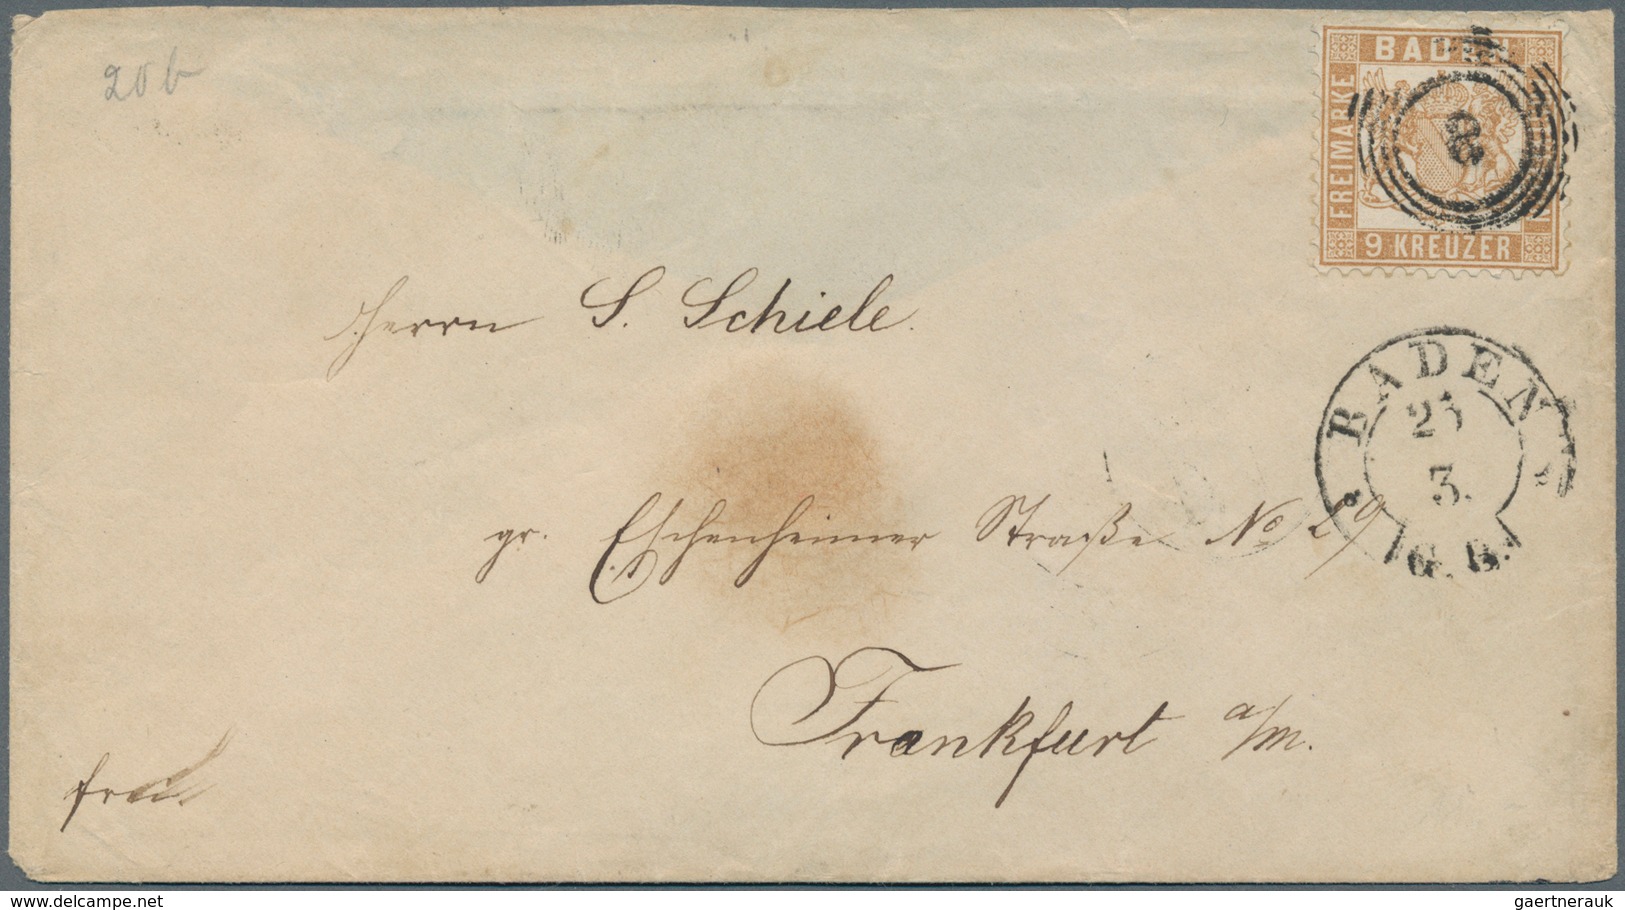 20 b
BADEN
FREIMARKE
9 KREUZER
8
Herrn S. Schiele.
BADEN
25
3.
G. B.
gr. Eschenheimer Straße No 29
Frankfurt a/m.
frei
delcampe.net
gaertnerauk